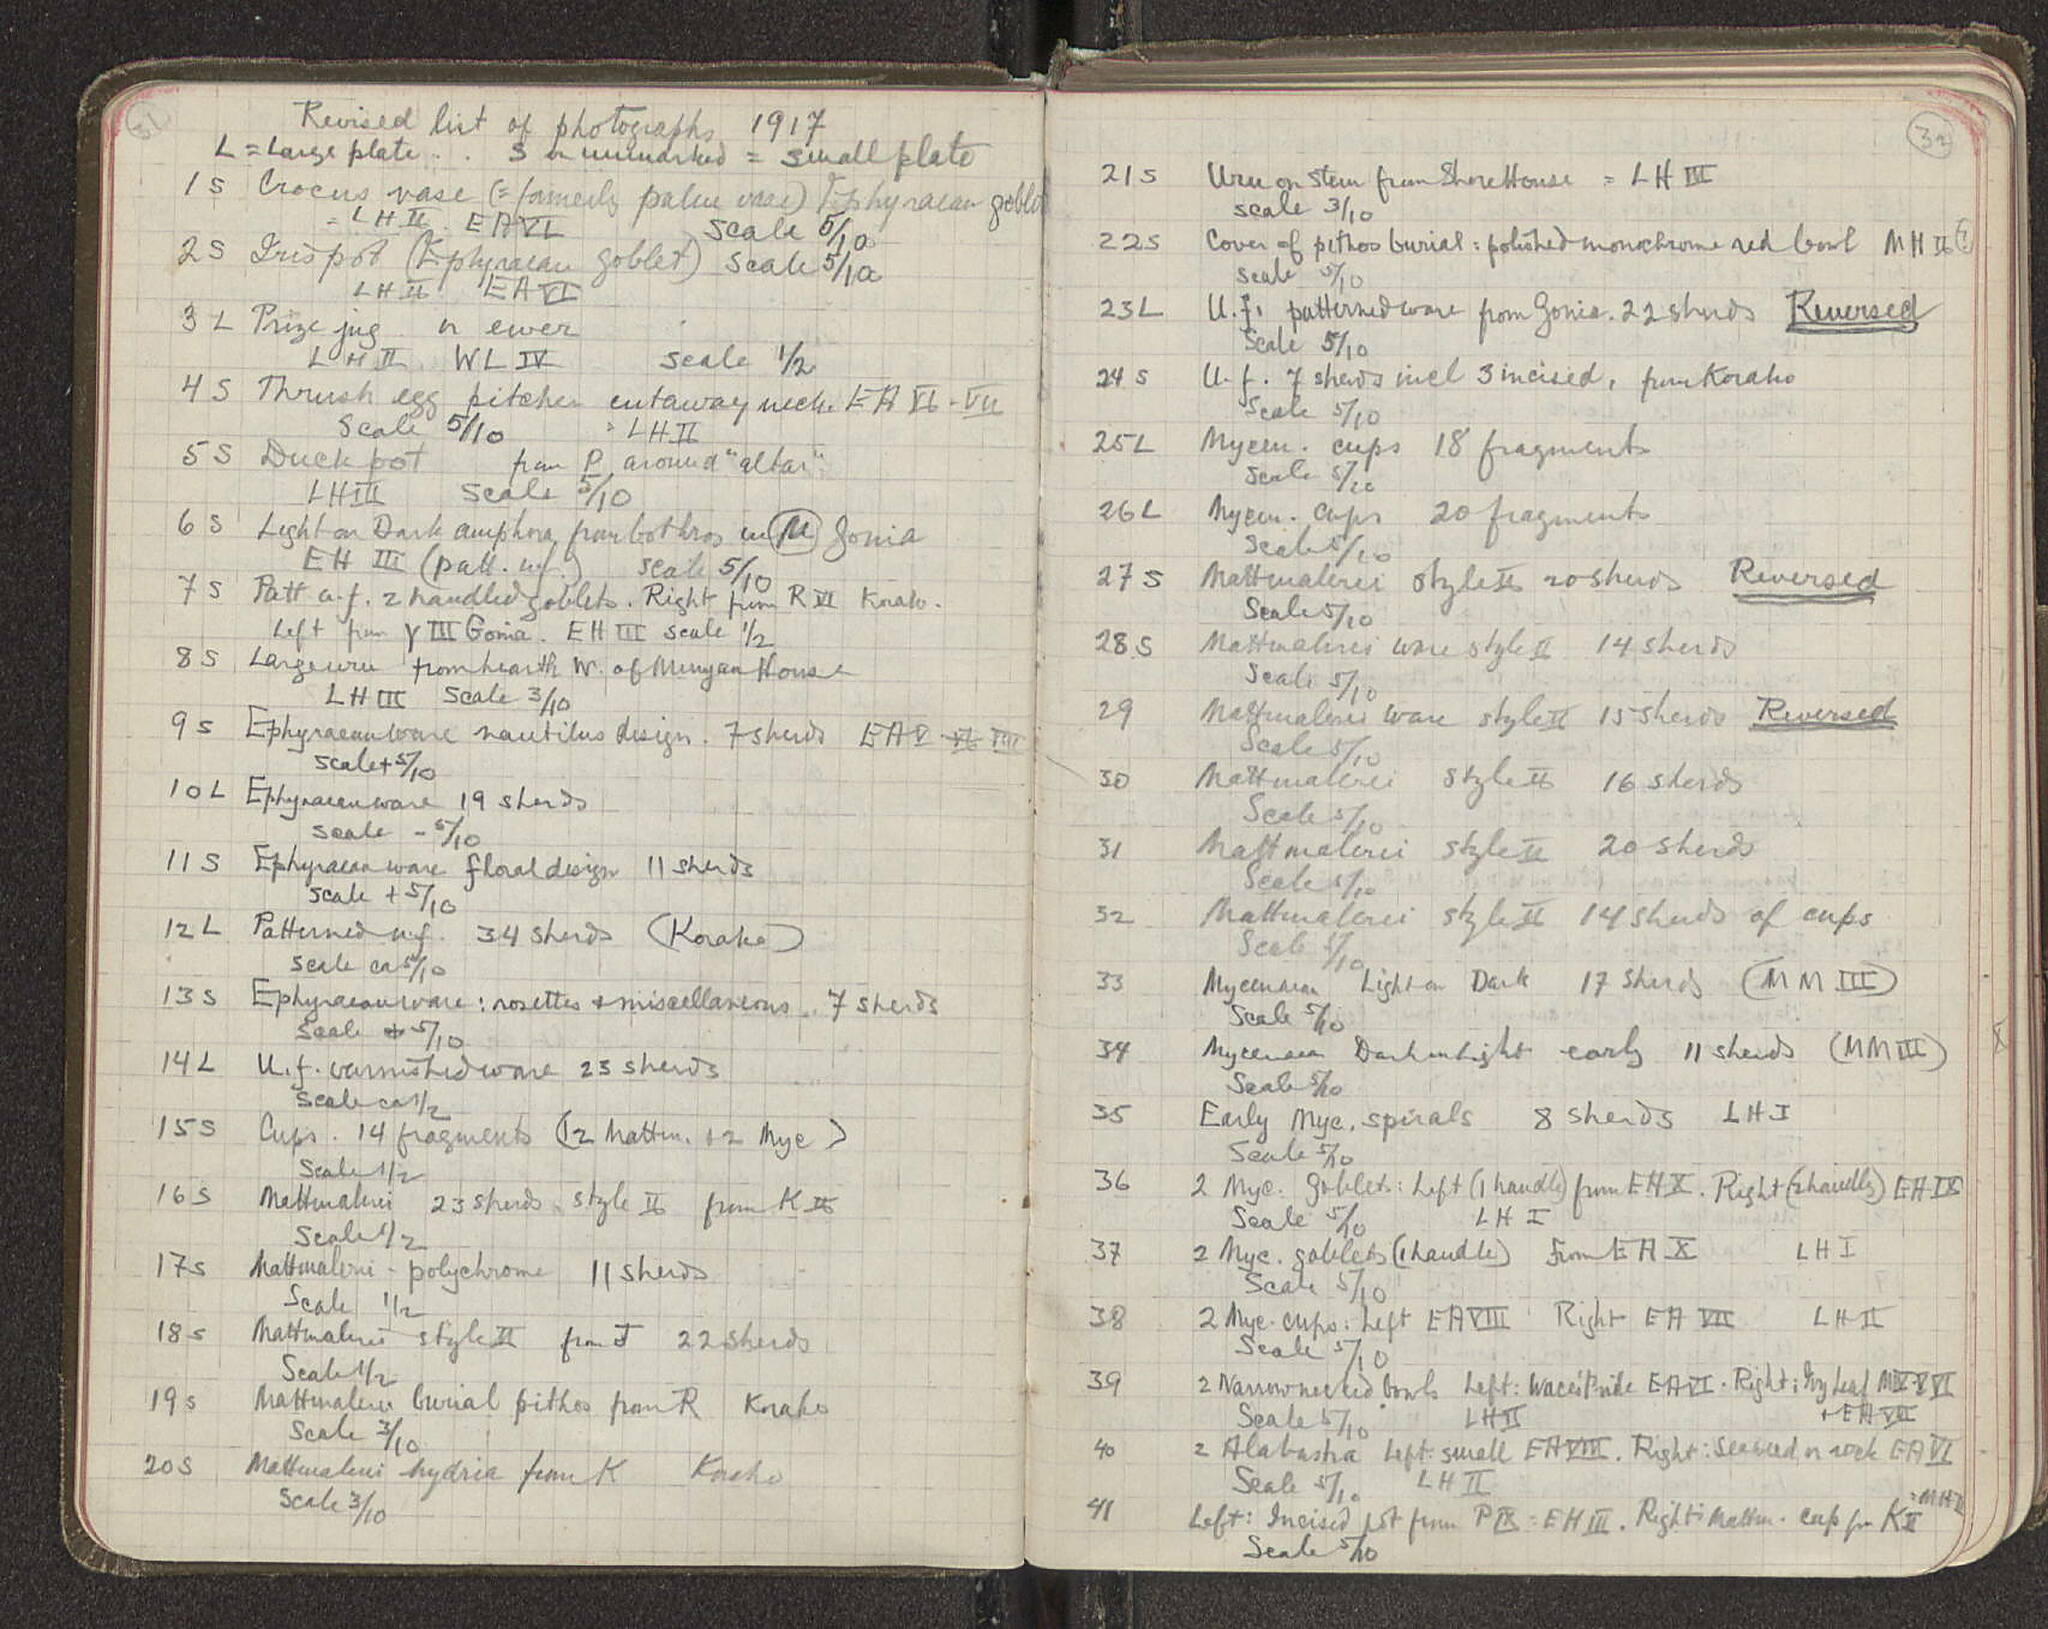 31
Revised list of photographs 1917
L = Large plate . . S or unmarked = small plate
1 S Crocus vase (= formerly palm vase) Ephyraean goblet
= LH II EA VI Scale 5/10
2 S Iris pot (Ephyraean goblet) Scale 5/10
LH II EA VI
3 L Prize jug or ewer
LH II WL IV Scale 1/2
4 S Thrush egg pitcher cutaway neck. EA VI - VII
Scale 5/10 = LH II
5 S Duck pot from P around "altar"
LH III Scale 5/10
6 S Light on Dark amphora from bothros in M Gonia
EH III (patt. u.f.) Scale 5/10
7 S Patt u.f. 2 handled goblets. Right from R VI Korako.
Left from γ III Gonia. EH III scale 1/2
8 S Large urn from hearth W. of Minyan House
LH III Scale 3/10
9 S Ephyraean ware nautilus design. 7 sherds EA V VI VII
Scale + 5/10
10 L Ephyraean ware 19 sherds
Scale - 5/10
11 S Ephyraean ware floral design 11 sherds
Scale + 5/10
12 L Patterned u.f. 34 sherds (Korako)
Scale ca 5/10
13 S Ephyraean ware: rosettes + miscellaneous. 7 sherds
Scale + 5/10
14 L U.f. varnished ware 23 sherds
Scale ca 1/2
15 S Cups. 14 fragments (12 Mattm. + 2 Myc)
Scale 1/2
16 S Mattmalerei 23 sherds style II from K II
Scale 1/2
17 S Mattmalerei - polychrome 11 sherds
Scale 1/2
18 S Mattmalerei style II from J 22 sherds
Scale 1/2
19 S Mattmalerei burial pithos from R Korako
Scale 3/10
20 S Mattmalerei hydria from K Korako
Scale 3/10
32
21 S Urn on stem from Shore House = LH III
Scale 3/10
22 S Cover of pithos burial: polished monochrome red bowl MH II (?
Scale 5/10
23 L U.f. patterned ware from Gonia. 22 sherds Reversed
Scale 5/10
24 S U.f. 7 sherds incl 3 incised, from Korako
Scale 5/10
25 L Mycen. cups 18 fragments
Scale 5/10
26 L Mycen. cups 20 fragments
Scale 5/10
27 S Mattmalerei style II 20 sherds Reversed
Scale 5/10
28 S Mattmalerei ware style II 14 sherds
Scale 5/10
29 Mattmalerei ware style II 15 sherds Reversed
Scale 5/10
30 Mattmalerei style II 16 sherds
Scale 5/10
31 Mattmalerei style II 20 sherds
Scale 5/10
32 Mattmalerei style II 14 sherds of cups
Scale 5/10
33 Mycenaean Light on Dark 17 sherds (MM III)
Scale 5/10
34 Mycenaean Dark on Light early 11 sherds (MM III)
Scale 5/10
35 Early Myc. spirals 8 sherds LH I
Scale 5/10
36 2 Myc. goblets: Left (1 handle) from EA X. Right (2 handles) EA IX
Scale 5/10 LH I
37 2 Myc. goblets (1 handle) from EA X LH I
Scale 5/10
38 2 Myc. cups: Left EA VIII Right EA VII LH II
Scale 5/10
39 2 Narrow necked bowls Left: Wace's Pride EA VI. Right: Ivy Leaf V VI
Scale 5/10 LH II + EA VII
40 2 Alabastra Left: small EA VIII. Right: Seaweed on rock EA VI
Scale 5/10 LH II
41 Left: Incised pot from P IX = EH III. Right: Mattm. cup from K II = MH II
Scale 5/10